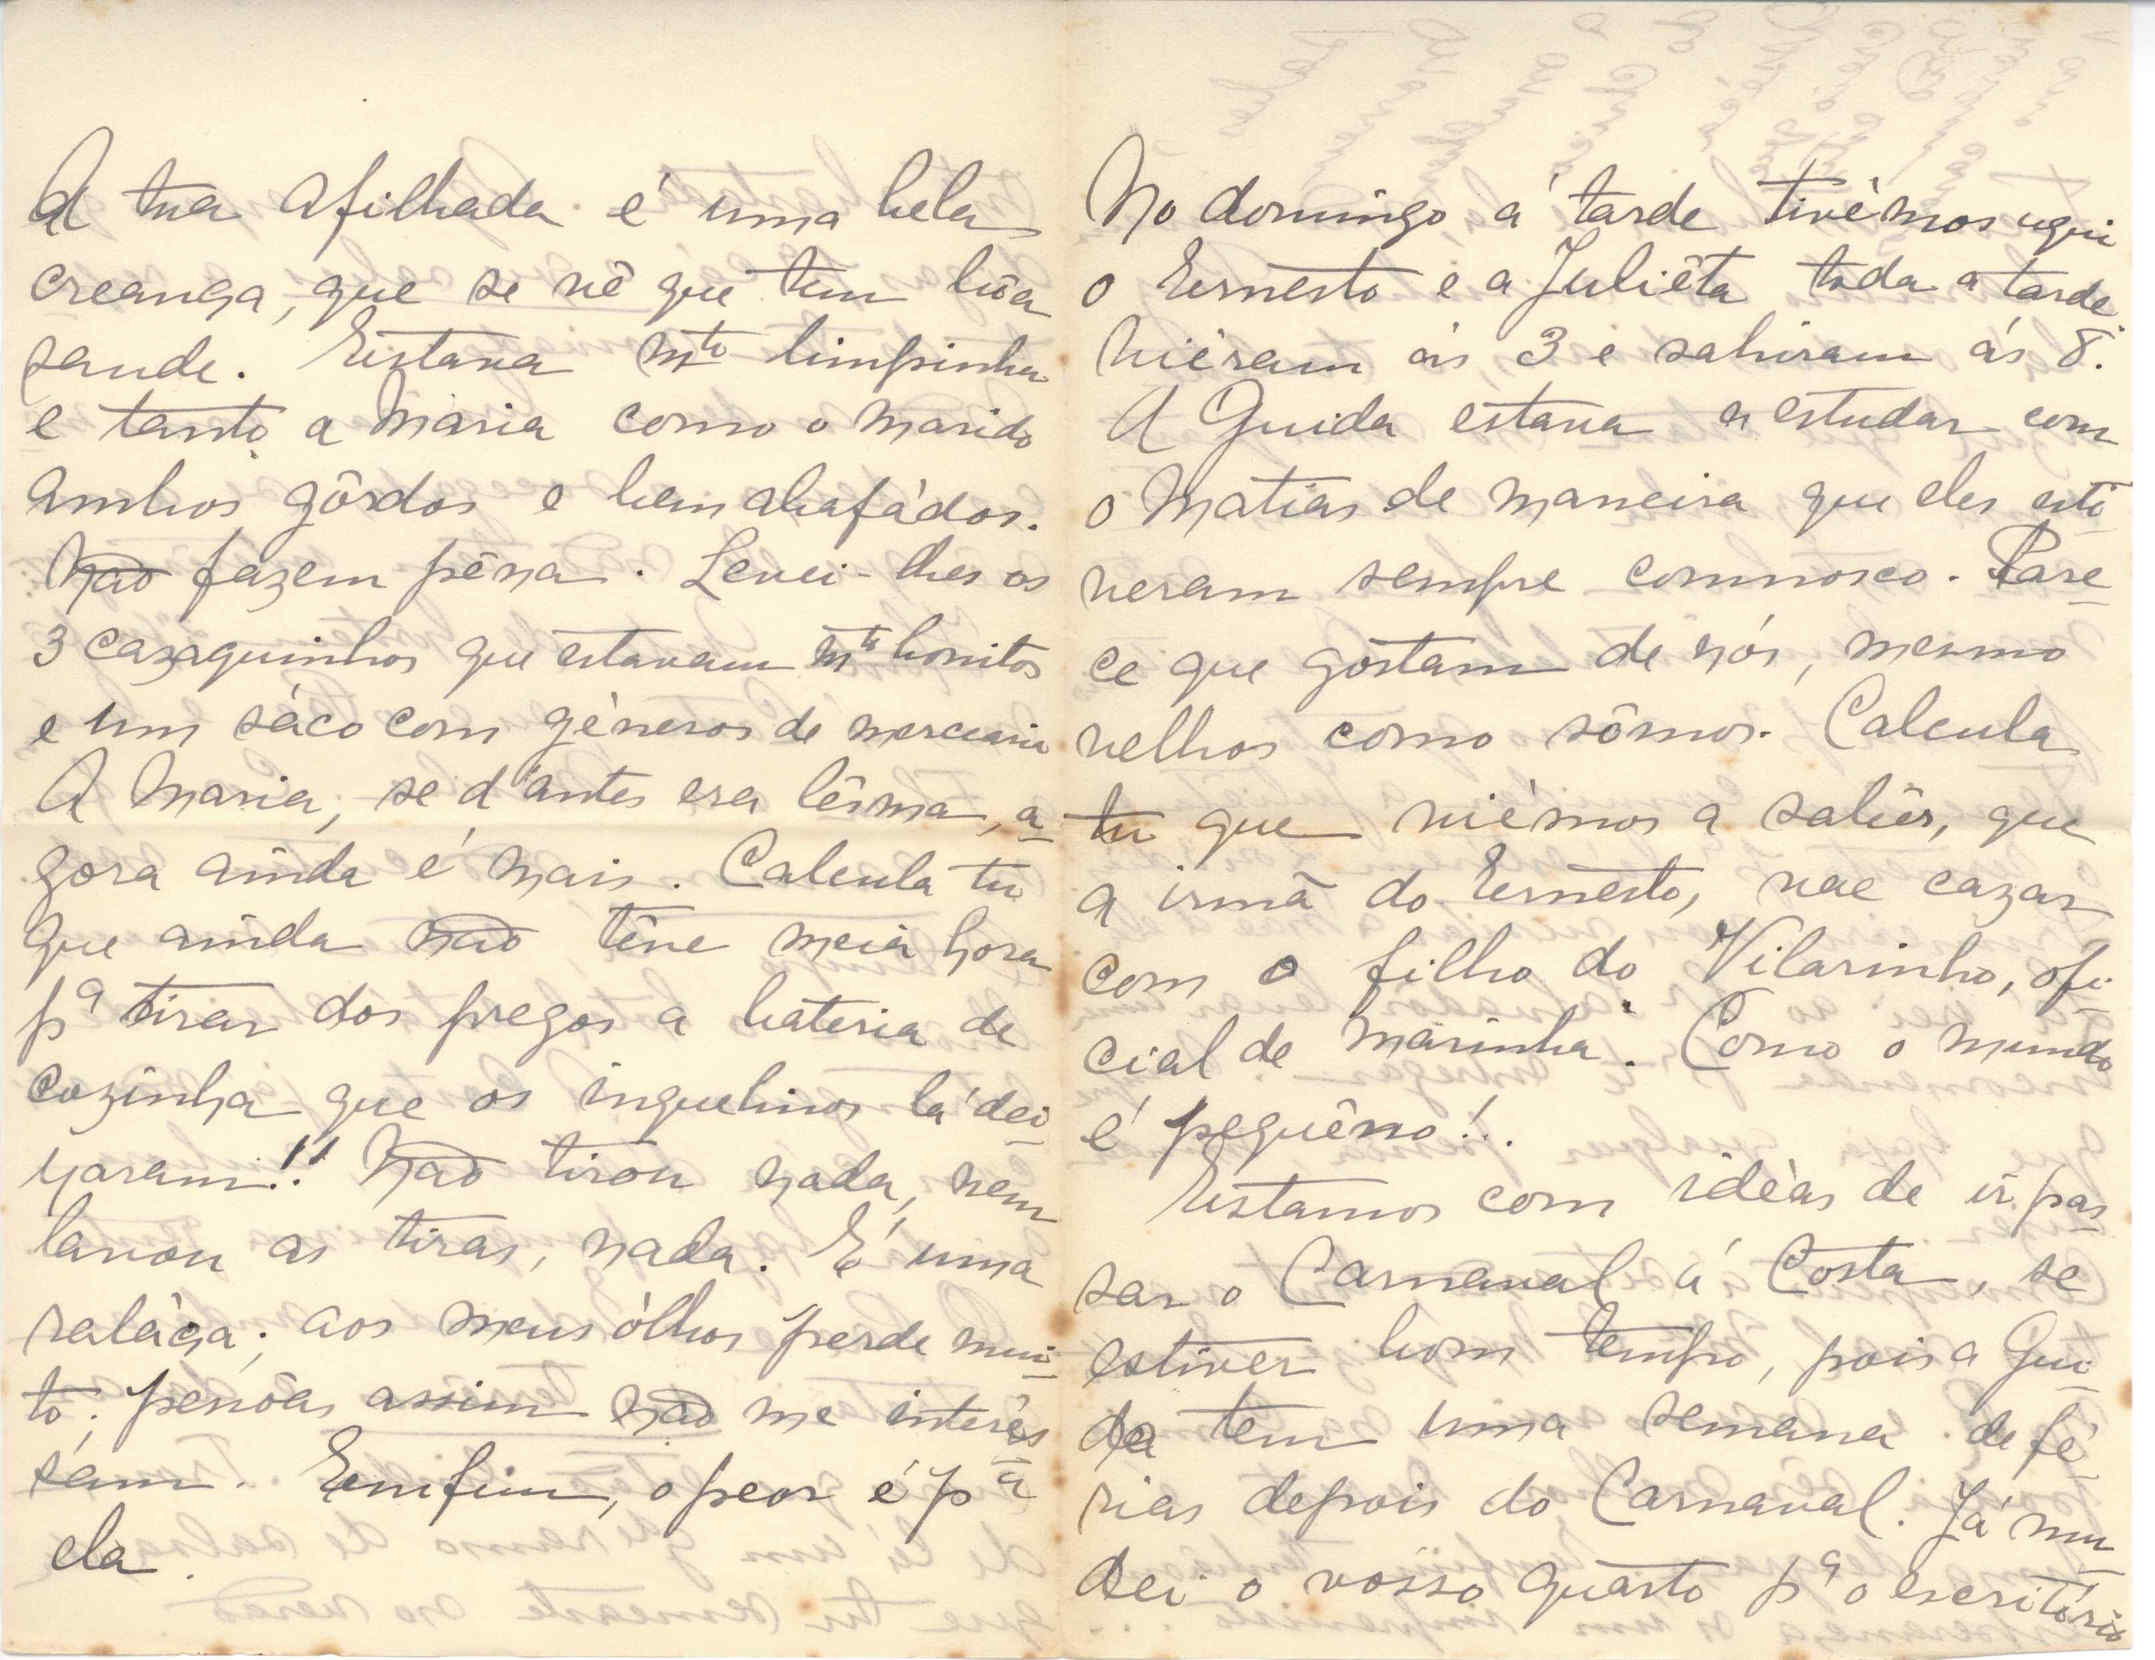 A tua afilhada é uma bela
creança, que se vê que tem bôa
saude. Estava mto limpinha
e tanto a Maria como o marido
ambos gôrdos e bem abafádos.
Não fazem pêna. Levei-lhes os
3 cazaquinhos que estavam mto bonitos
e um sáco com géneros de mercearia
A Maria, se d'antes era lêsma, a-
gora ainda é mais. Calcula tu
que ainda não têve meia hora
pª tirar dos pregos a bateria de
cozinha que os inquelinos lá dei-
xaram!! Não tirou nada, nem
lavou as tiras, nada. É uma
raláça; aos meus ólhos perde mui-
to; pessôas assim não me interés
sam. Emfim, o peor é pª
ela.
No domingo á tarde tivémos aqui
o Ernesto e a Juliêta toda a tarde.
Viéram ás 3 e sahiram ás 8.
A Guida estava a estudar com
o Matias de maneira que eles esti-
veram sempre comnosco. Pare-
ce que gostam de nós, mesmo
velhos como sômos. Calcula
tu que viémos a sabêr, que
a irmã do Ernesto, vae cazar
com o filho do Vilarinho, ofi-
cial de marinha. Como o mundo
é pequêno!..
Estamos com idéas de ir pas-
sar o Carnaval á Costa, se
estiver bom tempo, pois a Gui-
da tem uma semana de fé-
rias depois do Carnaval. Já mu-
dei o vosso quarto pª o escritório